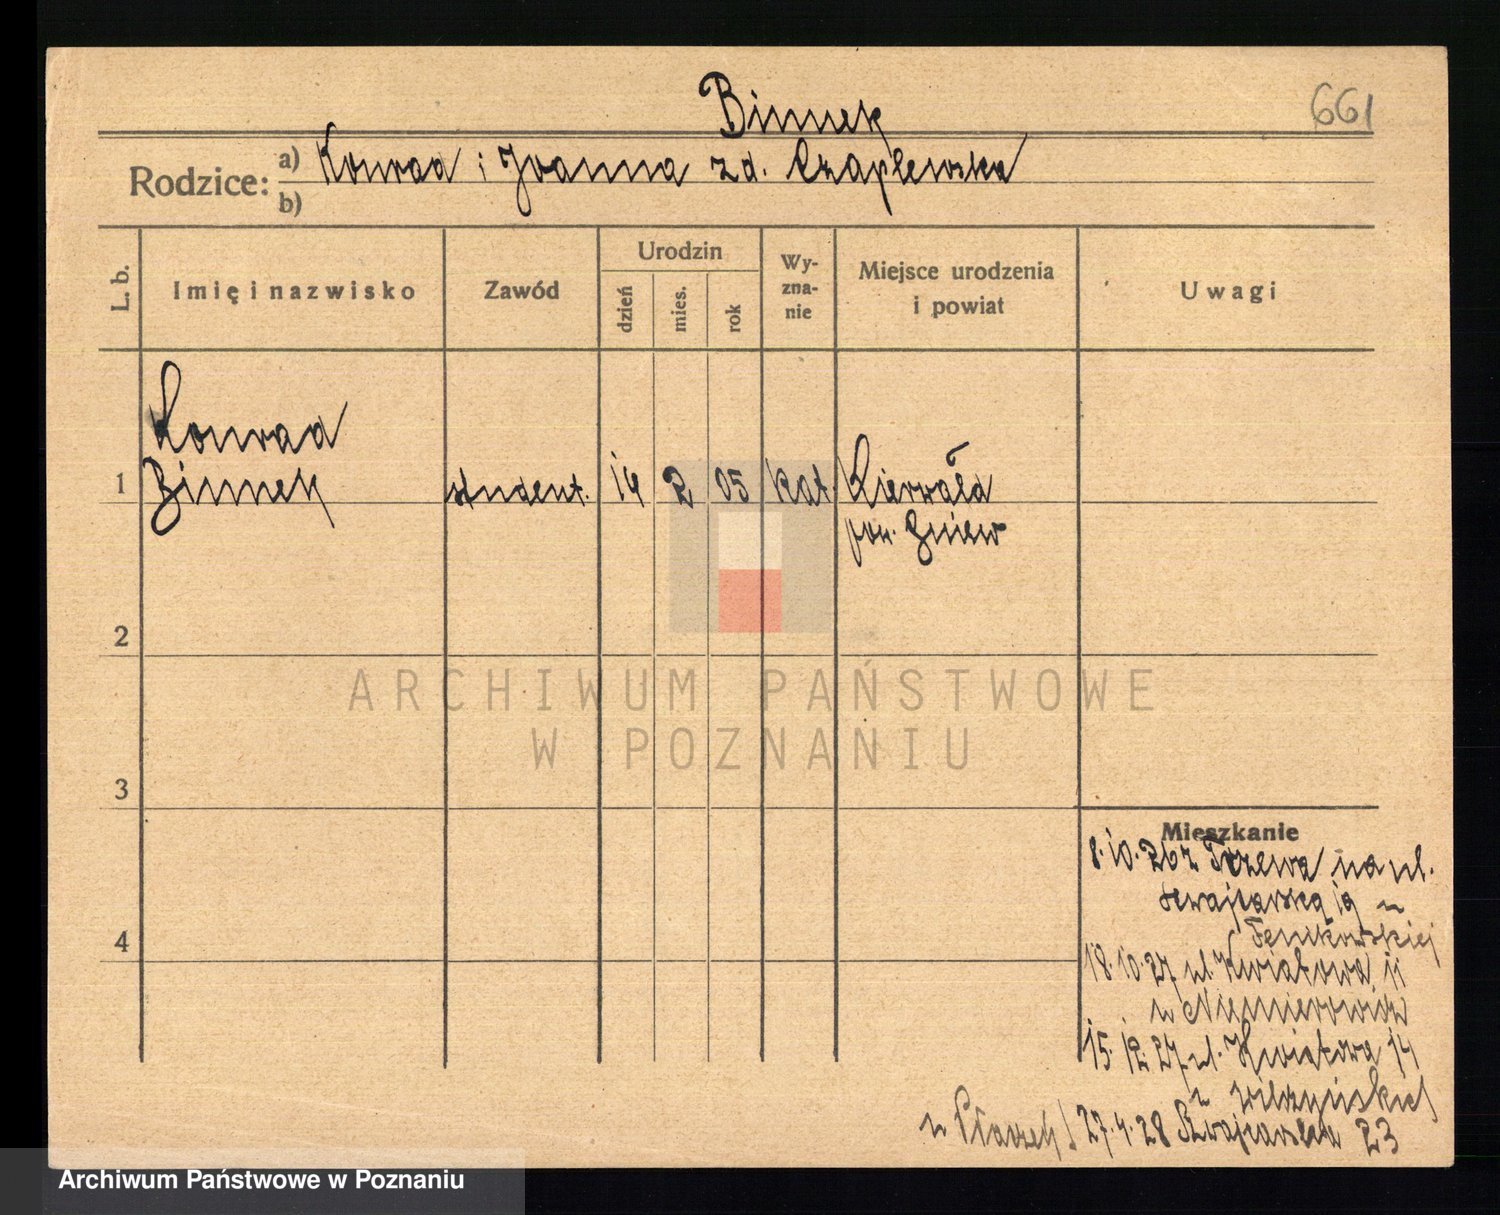 Bimek
661
Rodzice: a) Konrad i Joanna z d. Czaplewska
b)
L. b.
Imię i nazwisko
Zawód
Urodzin
dzień
mies.
rok
Wy-
zna-
nie
Miejsce urodzenia
i powiat
Uwagi
Konrad
1 Bimek student. 14 2 05 kat. Kierwałd
pow. Gniew
2
3
4
Mieszkanie
8.10.26 z Tczewa na ul.
Szwajcarską 19 u
18.10.27 ul. Kwiatowa 11
u Niemierowicz
15.12.27 ul. Kwiatowa 14
u Wilczyńskiej
u Płaczek / 27.4.28 Szwajcarska 23
ARCHIWUM PAŃSTWOWE
W POZNANIU
Archiwum Państwowe w Poznaniu